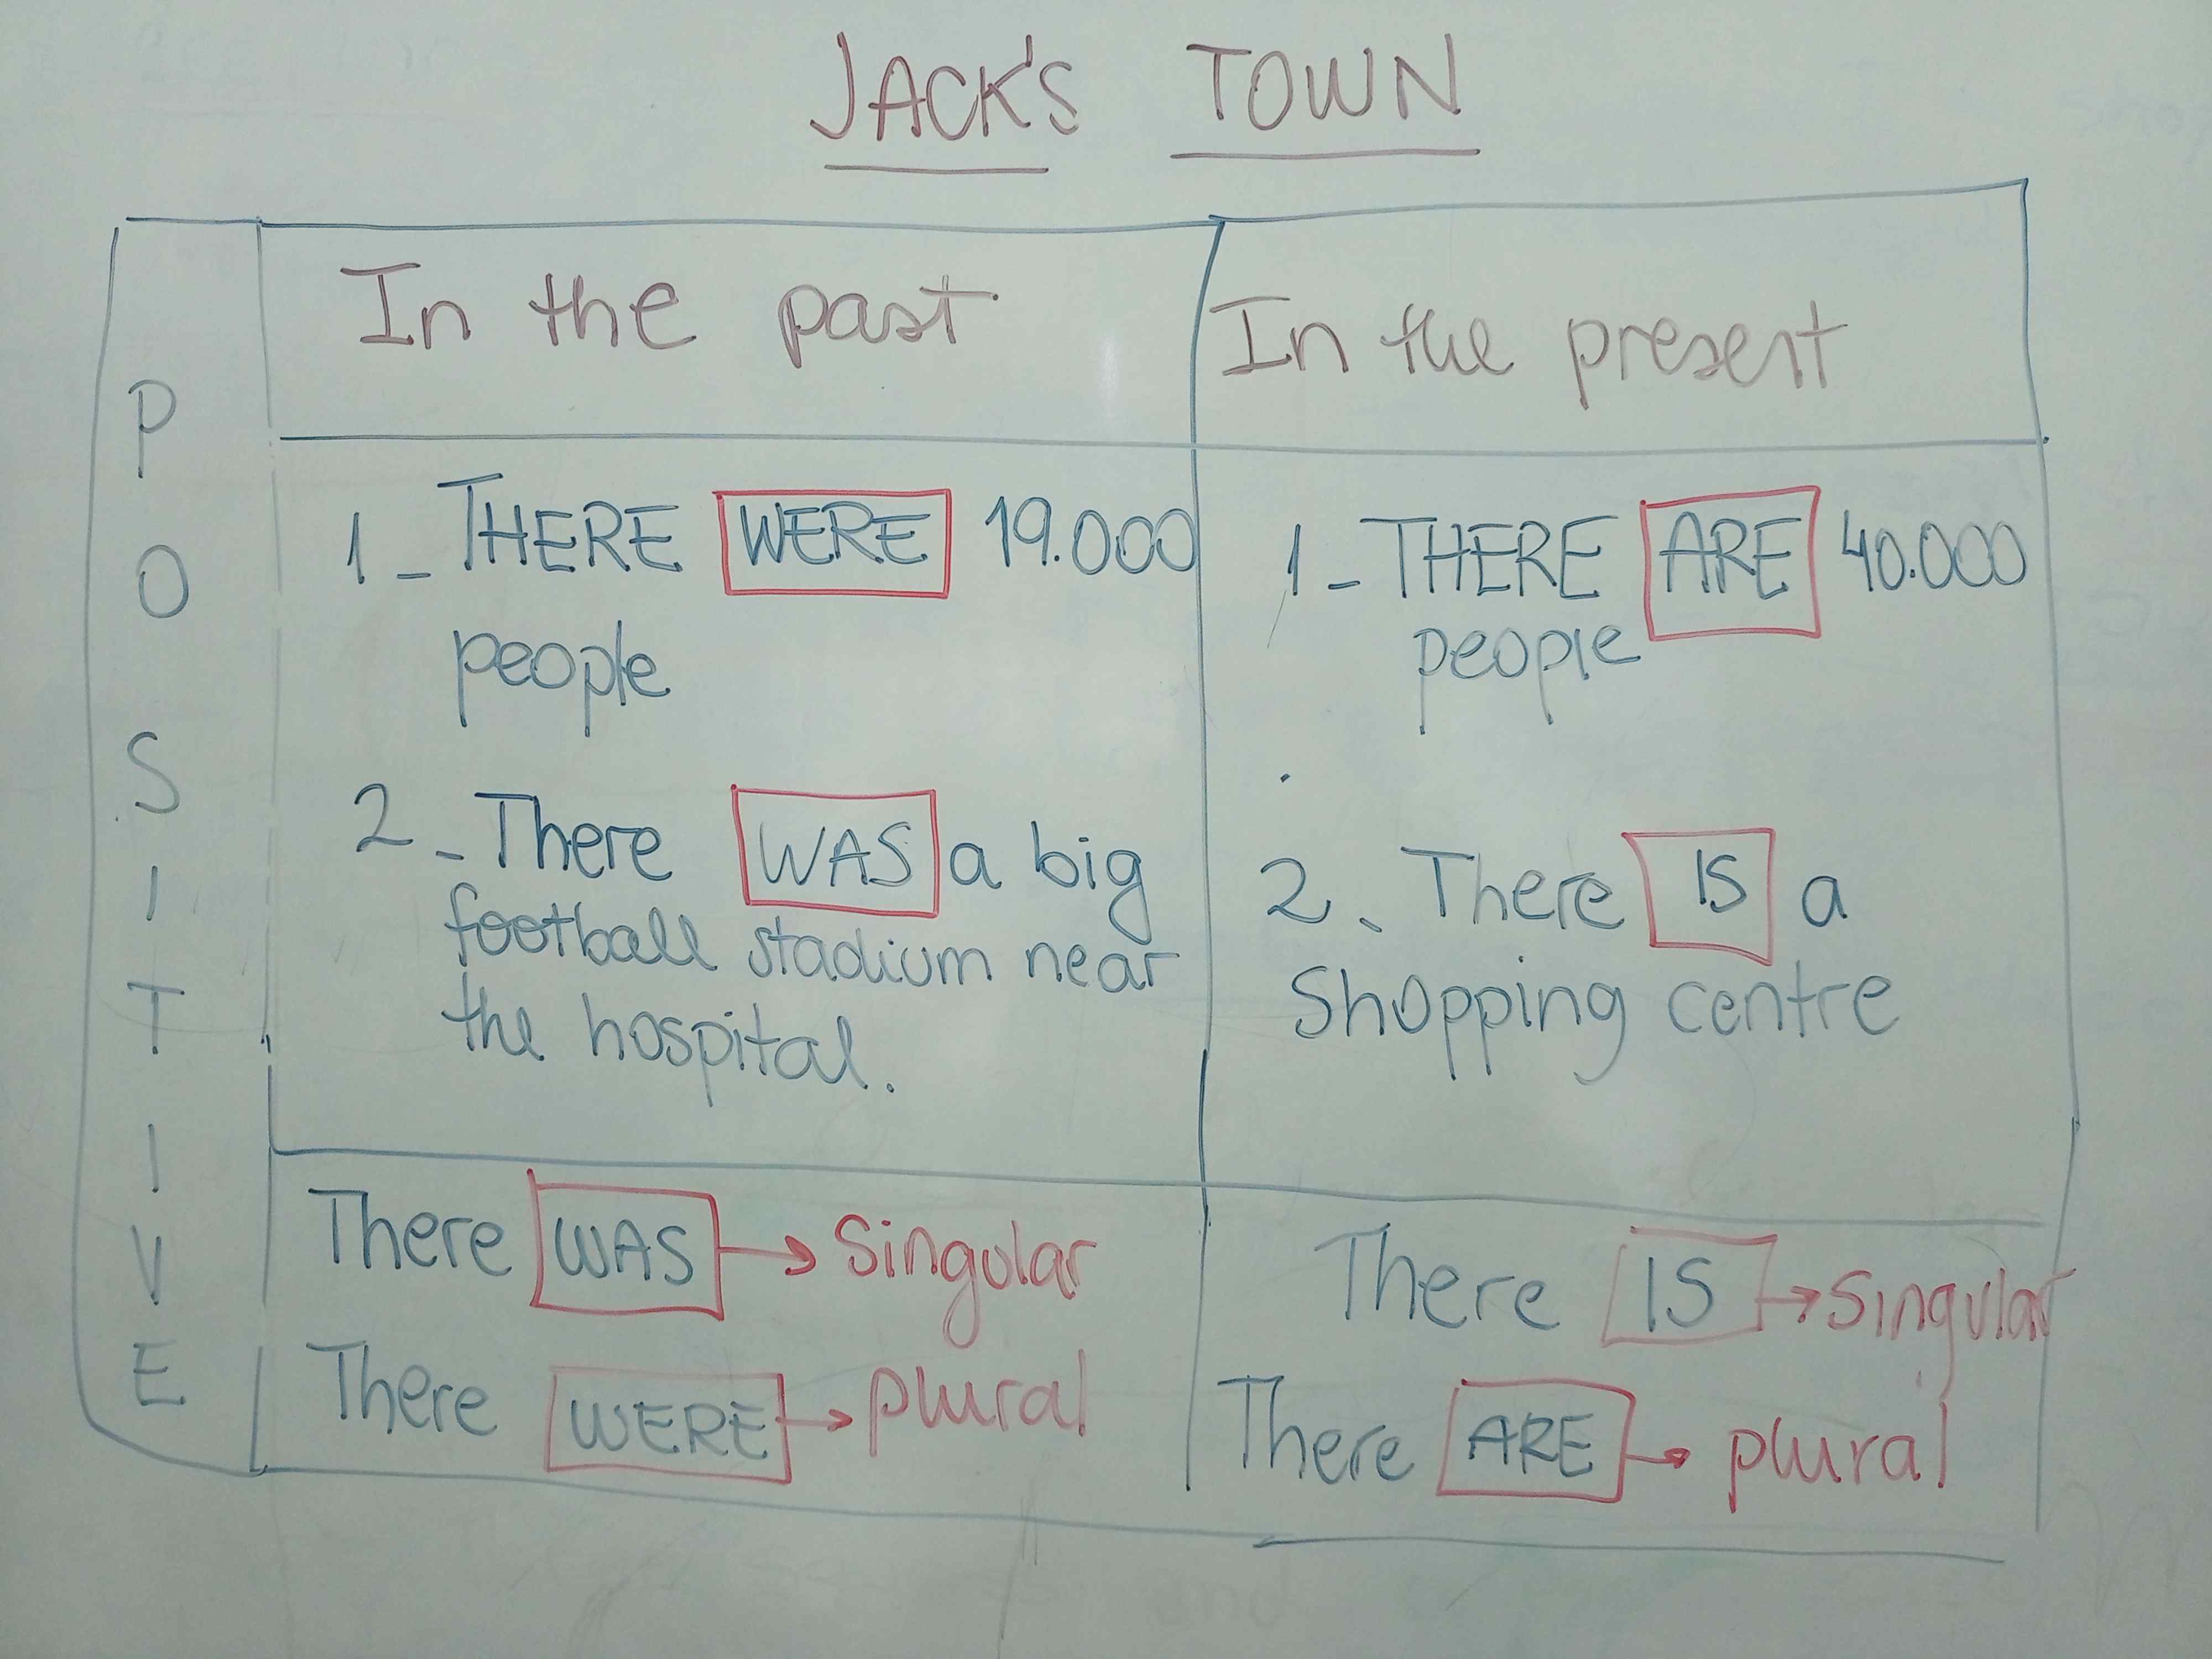 JACK'S TOWN
POSITIVE
In the past
1_ THERE WERE 19.000
people
2_ There WAS a big
football stadium near
the hospital.
There WAS → Singular
There WERE → plural
In the present
1_ THERE ARE 40.000
people
2_ There IS a
Shopping centre
There IS → Singular
There ARE → plural
and